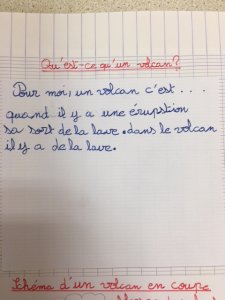 Qu'est-ce qu'un volcan?
Pour moi, un volcan c'est...
quand il y a une érupstion
sa sort de la lave. dans le volcan
il y a de la lave.
Schéma d'un volcan en coupe